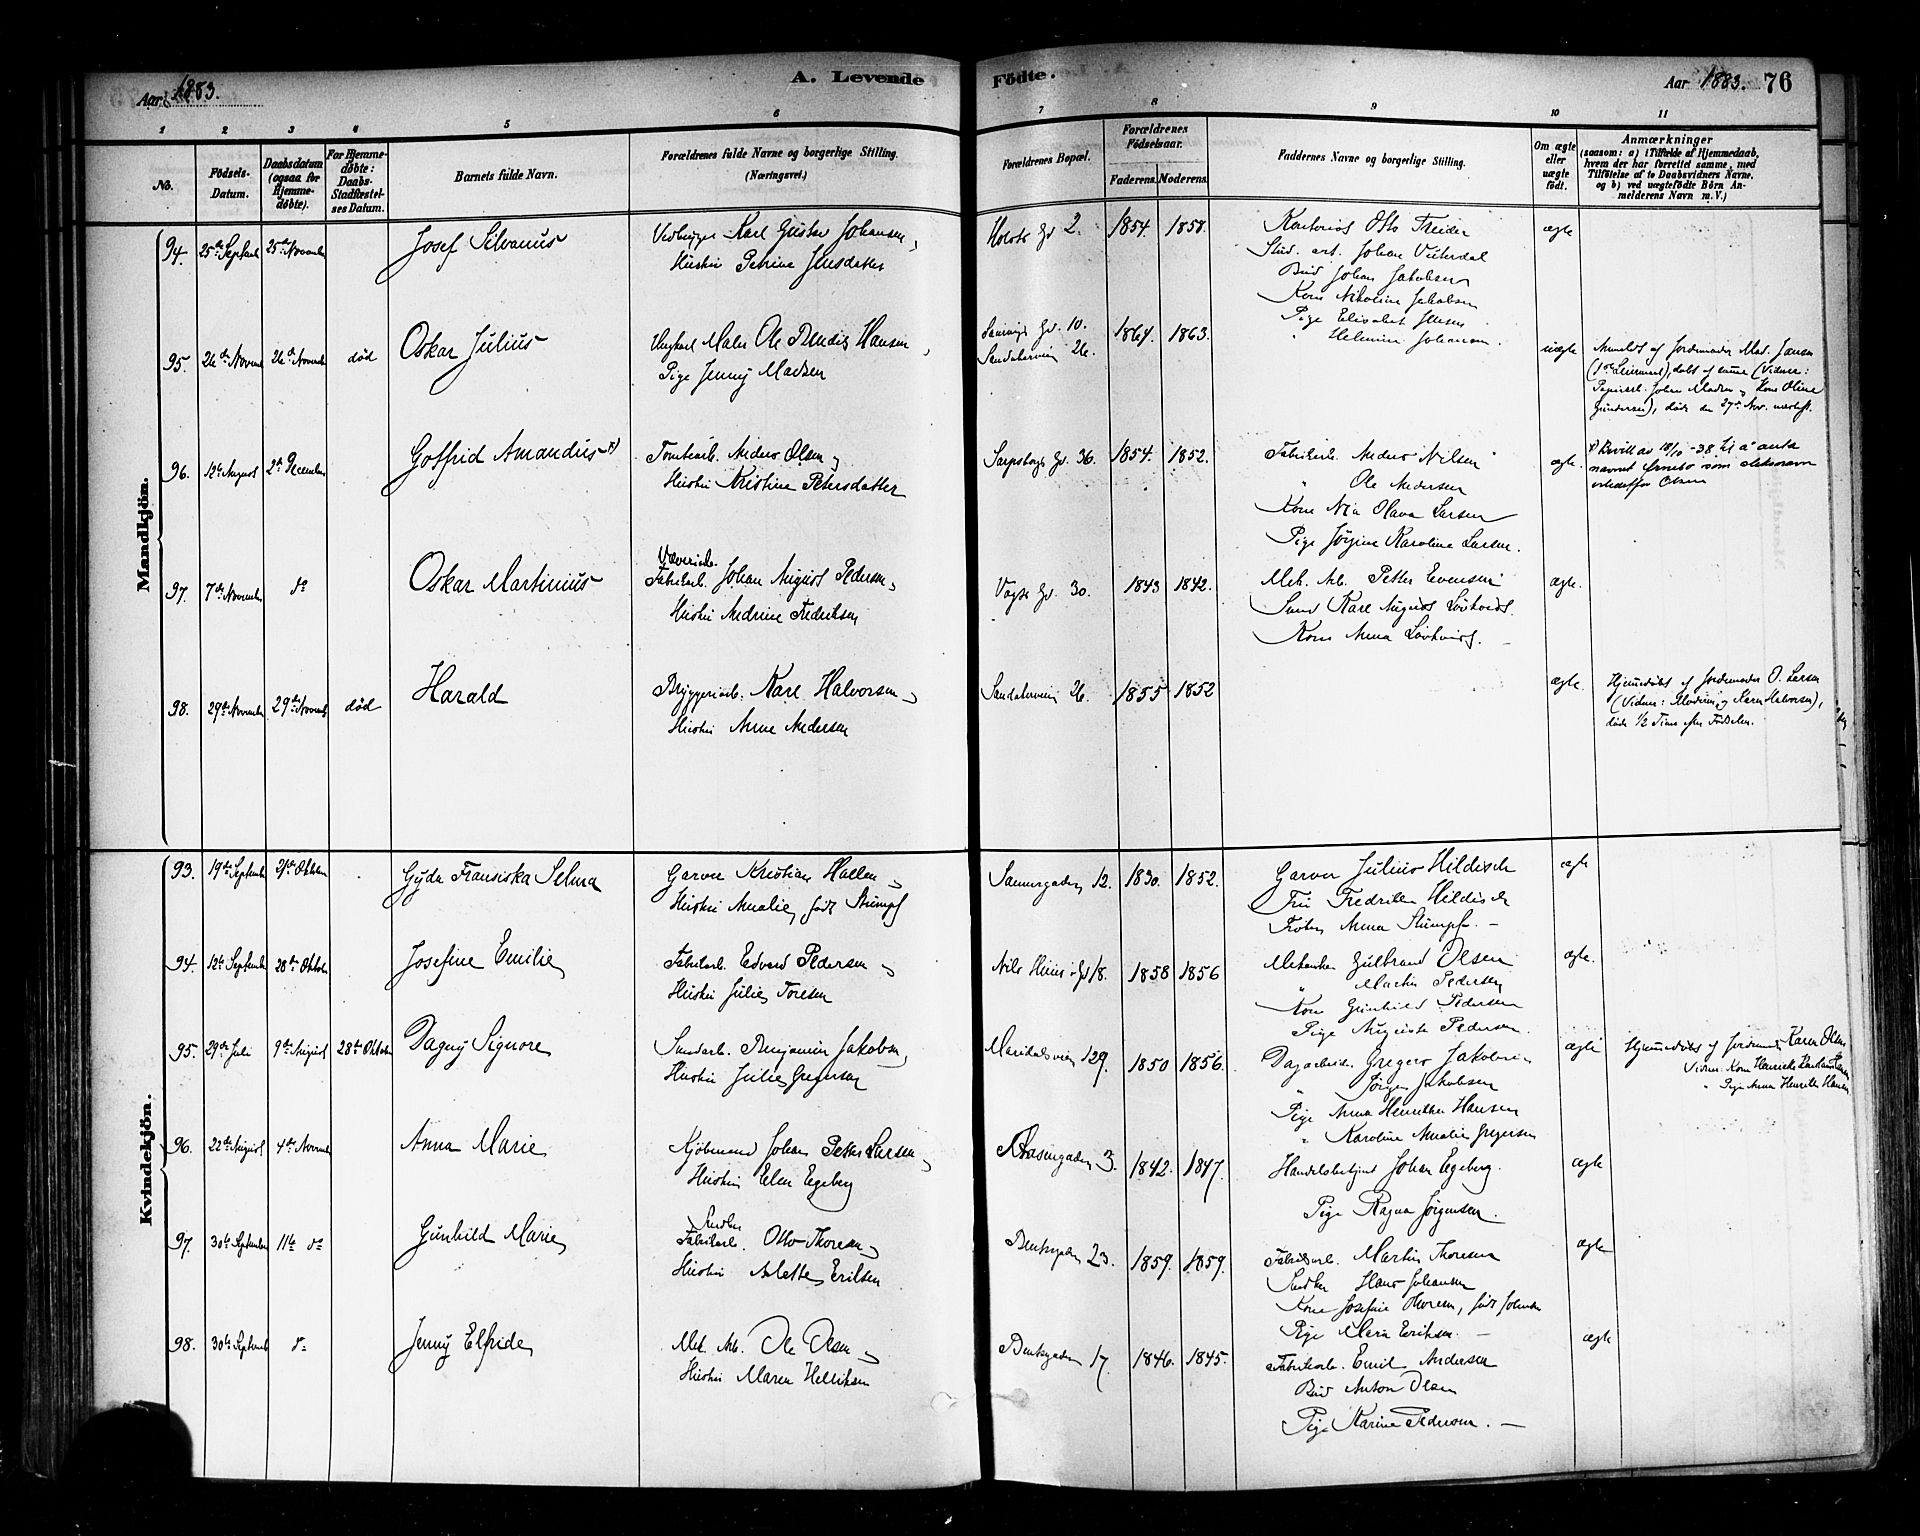 Aar 1883.
A. Levende Födte.
Aar 1883. 76
1 2 3 4 5 6 7 8 9 10 11
No.
Födsels-
Datum.
Daabsdatum
(ogsaa for
Hjemme-
döbte).
For Hjemme-
döbte:
Daabs-
Stadfæstel-
ses Datum.
Barnets fulde Navn.
Forældrenes fulde Navne og borgerlige Stilling.
(Næringsvei.)
Forældrenes Bopæl.
Forældrenes
Födselsaar.
Faderens. Moderens.
Faddernes Navne og borgerlige Stilling.
Om ægte
eller
uægte
födt.
Anmærkninger
(saasom: a) i Tilfælde af Hjemmedaab,
hvem der har forrettet samme, med
Tilföielse af to Daabsvidners Navne,
og b) ved uægtefödte Börn An-
melderens Navn m. V.)
Mandkjön.
94. 25de Septemb 25de November
Josef Silvanus
Karl Gustav Johansen,
Hustru Petrine Jensdatter
Holsts Gd 2. 1854. 1858.
Kontorist Otto Treider
Stud. art. Johan
Bud Johan Jakobsen
Kone Nikoline Jakobsen
Pige Elisabet Jensen
" Helmine Johansen.
ægte
95. 26de Novemb 26de Novemb død
Oskar Julius
Maler Ole Hansen,
Pige Jenny Madsen
Gd. 10.
Sandakerveien 26.
1864. 1863.
uægte
Anmeldt af Jordemoder Mad. Jansen
døbt af samme (Vidner:
Johan Madsen og Kone Oline
Gundersen), døde den 27de Nov. næsteft.
96. 12te August 2den December
Gotfrid Amandus x)
Tomtearb. Anders Olsen og
Hustru Kristine Petersdatter
Sarpsborgs Gd. 36. 1854. 1852.
Fabrikarb. Anders Nilsen
" Ole Andersen
Kone Olava Larsen
Pige Jørgine Karoline Larsen.
ægte.
x) Bevill. av 18/10 -38 til å anta
navnet som slektsnavn
istedetfor Olsen
97. 7de November do
Oskar Martinius
Væveriarb.
Fabrikarb. Johan August Pedersen,
Hustru Andrine Fredriksen
Vogts Gd. 30. 1843 1842.
Mek. Arb. Petter Evensen
Karl August
Kone Anna
ægte.
98. 29de November 29de Novemb død
Harald
Bryggeriarb. Karl Halvorsen,
Hustru Anne Andersen
Sandakerveien 26. 1855 1852
ægte.
Hjemmedøbt af Jordemoder O. Larsen
(Vidner: Moderen og Karen Halvorsen),
døde 1/2 Time efter Fødselen.
Kvindekjön.
93. 19de Septemb 21de Oktober
Gyda Fransiska Selma
Garver Kristian Hallen,
Hustru Amalie, født Stumpf
Sannergaden 12. 1830. 1852.
Garver Julius Hildisch
Fru Fredrikke Hildisch
Frøken Anna Stumpf. —
ægte
94. 12te September 28de Oktober
Josefine Emilie
Fabrikarb. Edvard Pedersen,
Hustru Julie Toresen
Nils Gd 18. 1858 1856
Mekaniker Gulbrand Olsen
" Martin Pedersen
Kone Gunhild Pedersen
Pige Augusta Pedersen.
ægte.
95. 29de Juli 9de August 28de Oktober
Dagny Signore
Benjamin Jakobsen,
Hustru Julie Gregersen
Maridalsveien 129. 1850 1856.
Dagarbeider Gregers Jakobsen
" Jørgen Jakobsen
Pige Anna Henrikke Hansen
" Karoline Amalie Gregersen
ægte
Hjemmedøbt af Jordemoder Karen Olsen
Vidner: Kone Henrikke
" Pige Anna Henrikke Hansen
96. 22de August 4de Novemb
Anna Marie
Kjøbmand Johan Petter Larsen,
Hustru Elen Egeberg
Aasengaden 3. 1842. 1847.
Handelsbetjent Johan Egeberg.
Pige Ragna Jørgensen.
ægte
97. 30te September 11te do
Gunhild Marie
Snedker
Fabrikarb. Otto Thoresen,
Hustru Anette Eriksen
Bentsegaden 23. 1859. 1859.
Fabrikarb. Martin Thoresen
Snedker Hans Johansen
Kone Josefine Thoresen, født Johnsen
Pige Maria Eriksen. —
ægte
98. 30te Septemb do
Jenny Elfride
Mek. Arb. Ole Olsen,
Hustru Maren Helliksen
Bentsegaden 17. 1846. 1845.
Fabrikarb. Emil Andersen
Bud Anton Olsen
Pige Karine Pedersen. —
ægte